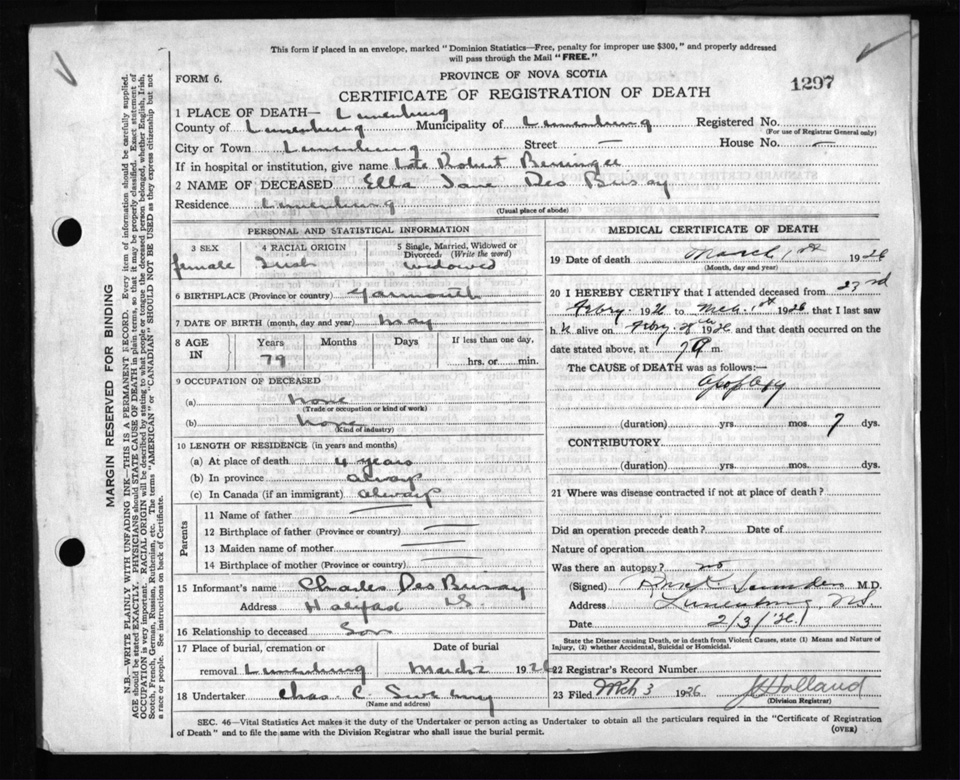 This form if placed in an envelope, marked "Dominion Statistics—Free, penalty for improper use $300," and properly addressed
will pass through the Mail "FREE."
FORM 6.
PROVINCE OF NOVA SCOTIA
CERTIFICATE OF REGISTRATION OF DEATH
1297
1 PLACE OF DEATH— Lunenburg
County of Lunenburg Municipality of Lunenburg Registered No.
(For use of Registrar General only)
City or Town Lunenburg Street — House No. —
If in hospital or institution, give name late Robert
2 NAME OF DECEASED Ella Jane Des Brisay
Residence Lunenburg
(Usual place of abode)
PERSONAL AND STATISTICAL INFORMATION
3 SEX
female
4 RACIAL ORIGIN
Irish
5 Single, Married, Widowed or
Divorced. (Write the word)
widowed
6 BIRTHPLACE (Province or country) Yarmouth
7 DATE OF BIRTH (month, day and year) May
8 AGE IN
Years Months Days If less than one day,
79 hrs. or min.
9 OCCUPATION OF DECEASED
(a) none
(Trade or occupation or kind of work)
(b) none
(Kind of industry)
10 LENGTH OF RESIDENCE (in years and months)
(a) At place of death 4 years
(b) In province always
(c) In Canada (if an immigrant) always
Parents
11 Name of father —
12 Birthplace of father (Province or country) —
13 Maiden name of mother —
14 Birthplace of mother (Province or country) —
15 Informant's name Charles Des Brisay
Address Halifax N.S.
16 Relationship to deceased Son
17 Place of burial, cremation or Date of burial
removal Lunenburg March 2 1926
18 Undertaker Chas. C.
(Name and address)
MEDICAL CERTIFICATE OF DEATH
19 Date of death March 1st 1926
(Month, day and year)
20 I HEREBY CERTIFY that I attended deceased from 23rd
Febry. 1926 to Mch. 1st 1926 that I last saw
h alive on Febry. 1926 and that death occurred on
the date stated above, at 7 m.
The CAUSE of DEATH was as follows:—
Apoplexy
(duration) yrs. mos. 7 dys.
CONTRIBUTORY
(duration) yrs. mos. dys.
21 Where was disease contracted if not at place of death?
Did an operation precede death? Date of
Nature of operation
Was there an autopsy? no
(Signed) Saunders M.D.
Address Lunenburg, N.S.
Date 2/3/26
State the Disease causing Death, or in death from Violent Causes, state (1) Means and Nature of
Injury, (2) whether Accidental, Suicidal or Homicidal.
22 Registrar's Record Number
23 Filed Mch 3 1926 Holland
(Division Registrar)
SEC. 46—Vital Statistics Act makes it the duty of the Undertaker or person acting as Undertaker to obtain all the particulars required in the "Certificate of Registration
of Death" and to file the same with the Division Registrar who shall issue the burial permit.
(OVER)
MARGIN RESERVED FOR BINDING
N.B.—WRITE PLAINLY WITH UNFADING INK—THIS IS A PERMANENT RECORD. Every item of information should be carefully supplied.
AGE should be stated EXACTLY. PHYSICIANS should STATE CAUSE OF DEATH in plain terms, so that it may be properly classified. Exact statement of
OCCUPATION is very important. RACIAL ORIGIN will be described by stating to what people or tongue the deceased person belonged, whether English, Irish,
Scotch, French, German, Russian, Ruthenian, etc. The terms "AMERICAN" or "CANADIAN" SHOULD NOT BE USED as they express citizenship but not
a race or people. See instructions on back of Certificate.